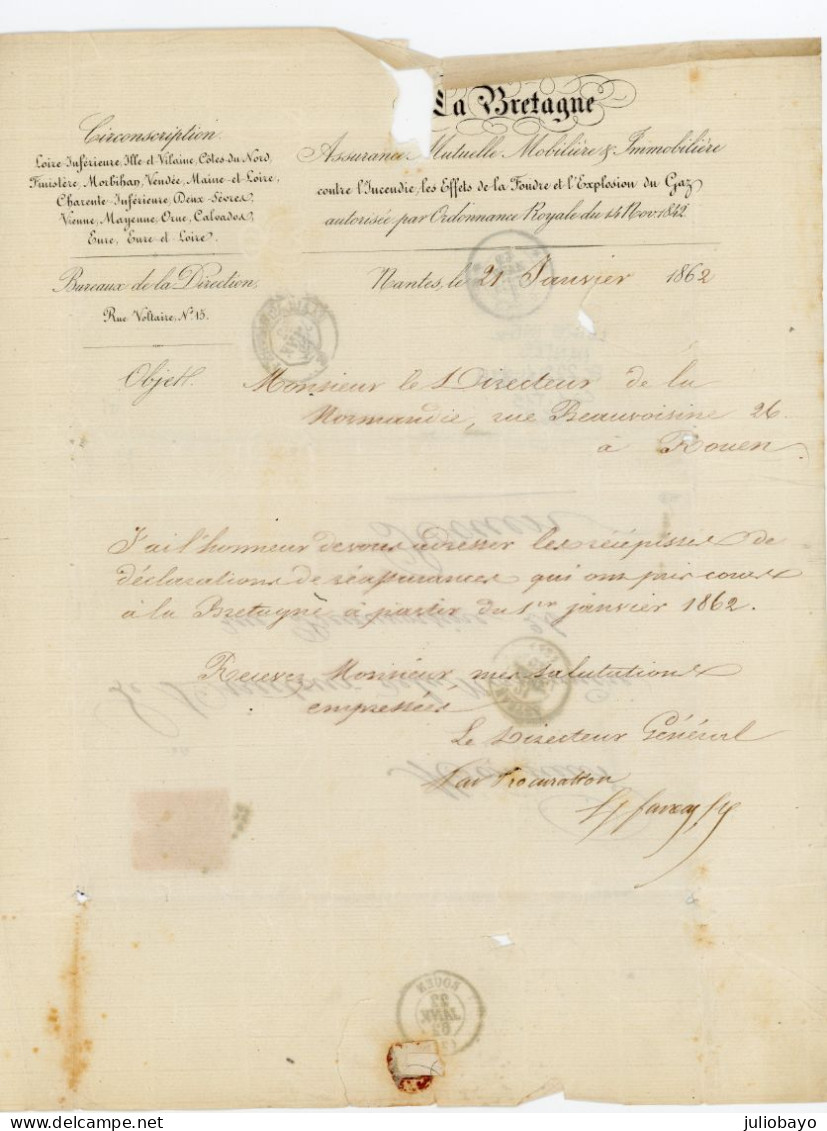 La Bretagne
Assurance Mutuelle, Mobilière & Immobilière
contre l'Incendie, les Effets de la Foudre et l'Explosion du Gaz
autorisée par Ordonnance Royale du 14 Nov. 1842.
Circonscription.
Loire-Inférieure, Ille et Vilaine, Côtes-du-Nord,
Finistère, Morbihan, Vendée, Maine-et-Loire,
Charente-Inférieure, Deux-Sèvres,
Vienne, Mayenne, Orne, Calvados,
Eure, Eure-et-Loire.
Bureaux de la Direction,
Rue Voltaire, N°. 15.
Nantes, le 21 Janvier 1862
Objet.
Monsieur le Directeur de la
Normandie, rue Beauvoisine 26
à Rouen
J'ai l'honneur de vous adresser les récépissés de
déclarations de réassurances qui ont pris cours
à la Bretagne à partir du 1er janvier 1862.
Recevez Monsieur, mes salutations
empressées
Le Directeur Général
Par Procuration
ROUEN
22
JANV
62
juliobayo